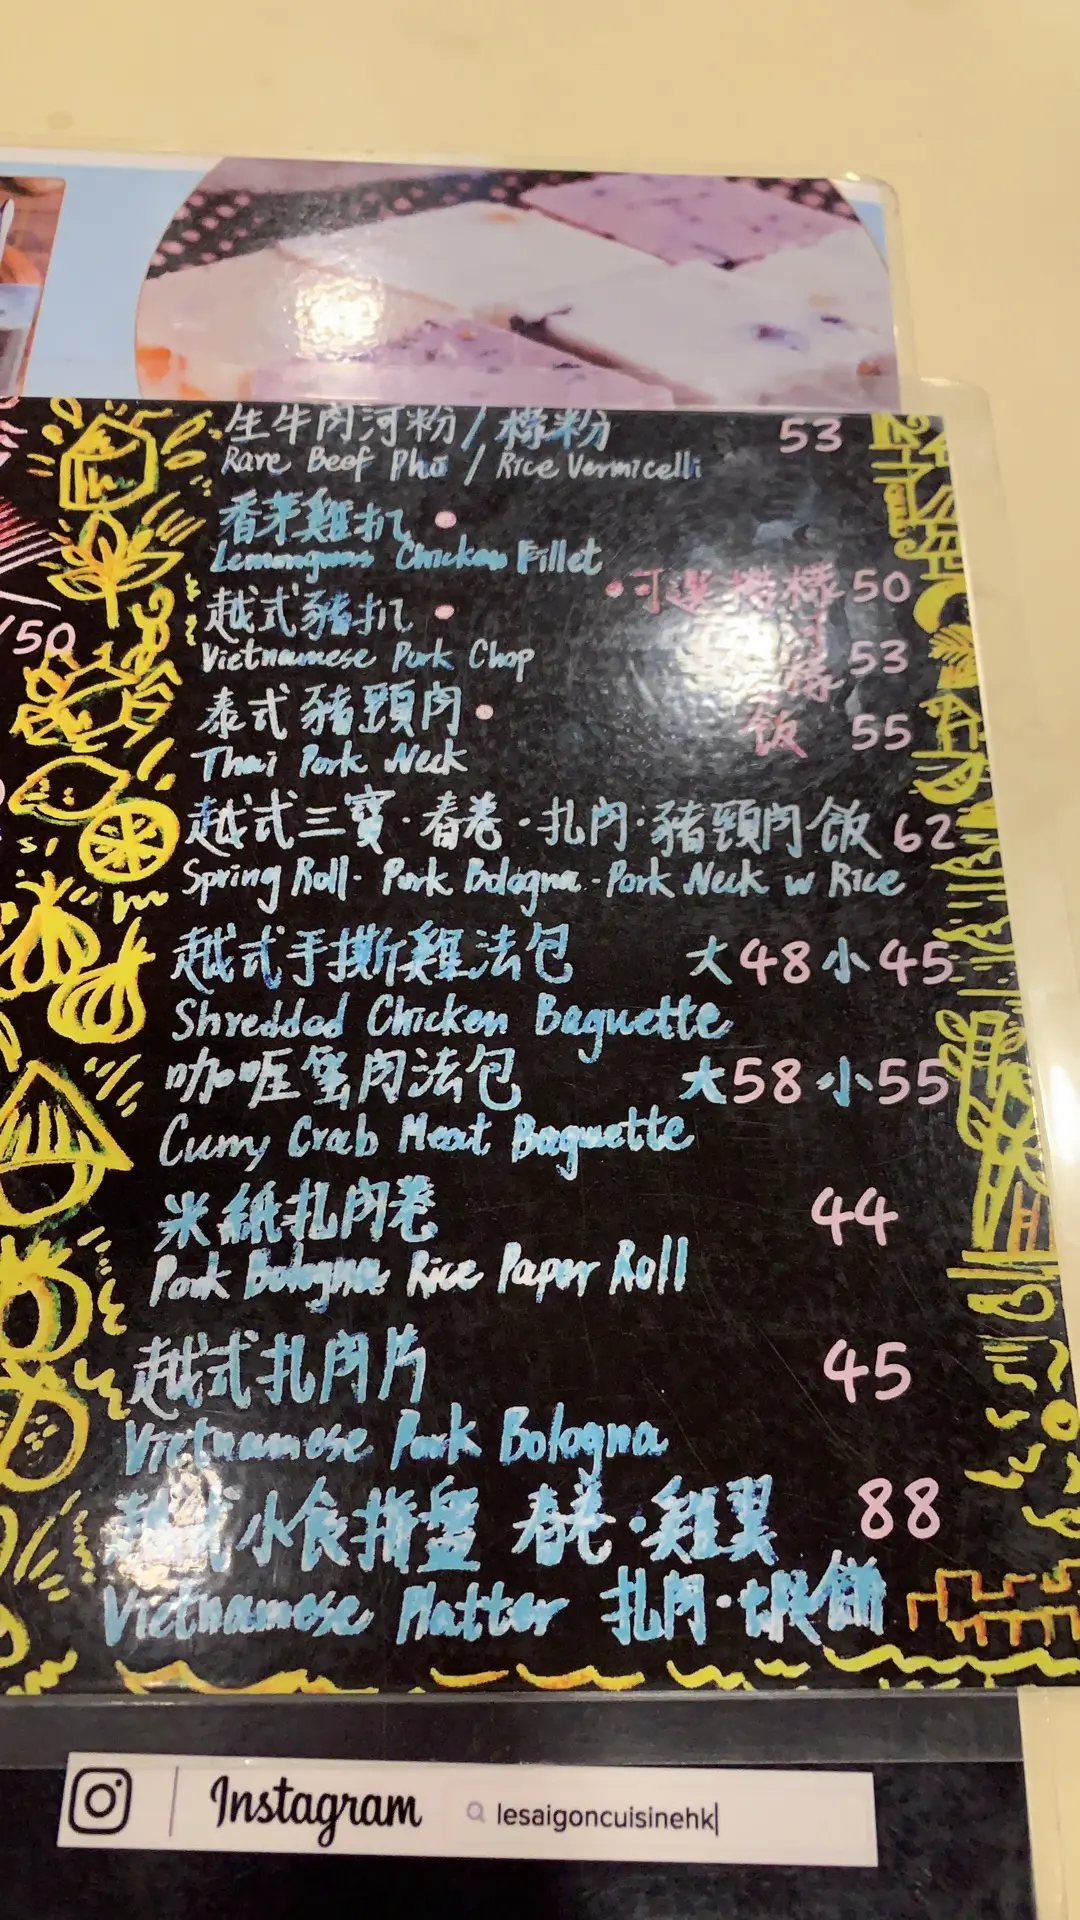 生牛肉河粉/檬粉 53
Rare Beef Pho / Rice Vermicelli
香茅雞扒
Lemongrass Chicken Fillet
•可選搭檬 50
/50
越式豬扒
Vietnamese Pork Chop
53
泰式豬頸肉
飯 55
Thai Pork Neck
越式三寶·春卷·扎肉·豬頸肉飯 62
Spring Roll · Pork Bologna · Pork Neck w Rice
越式手撕雞法包 大48 小45
Shredded Chicken Baguette
咖喱蟹肉法包 大58 小55
Curry Crab Meat Baguette
米紙扎肉卷 44
Pork Bologna Rice Paper Roll
越式扎肉片 45
Vietnamese Pork Bologna
越式小食拼盤 春卷·雞翼 88
Vietnamese Platter 扎肉·蝦餅
Instagram lesaigoncuisinehk